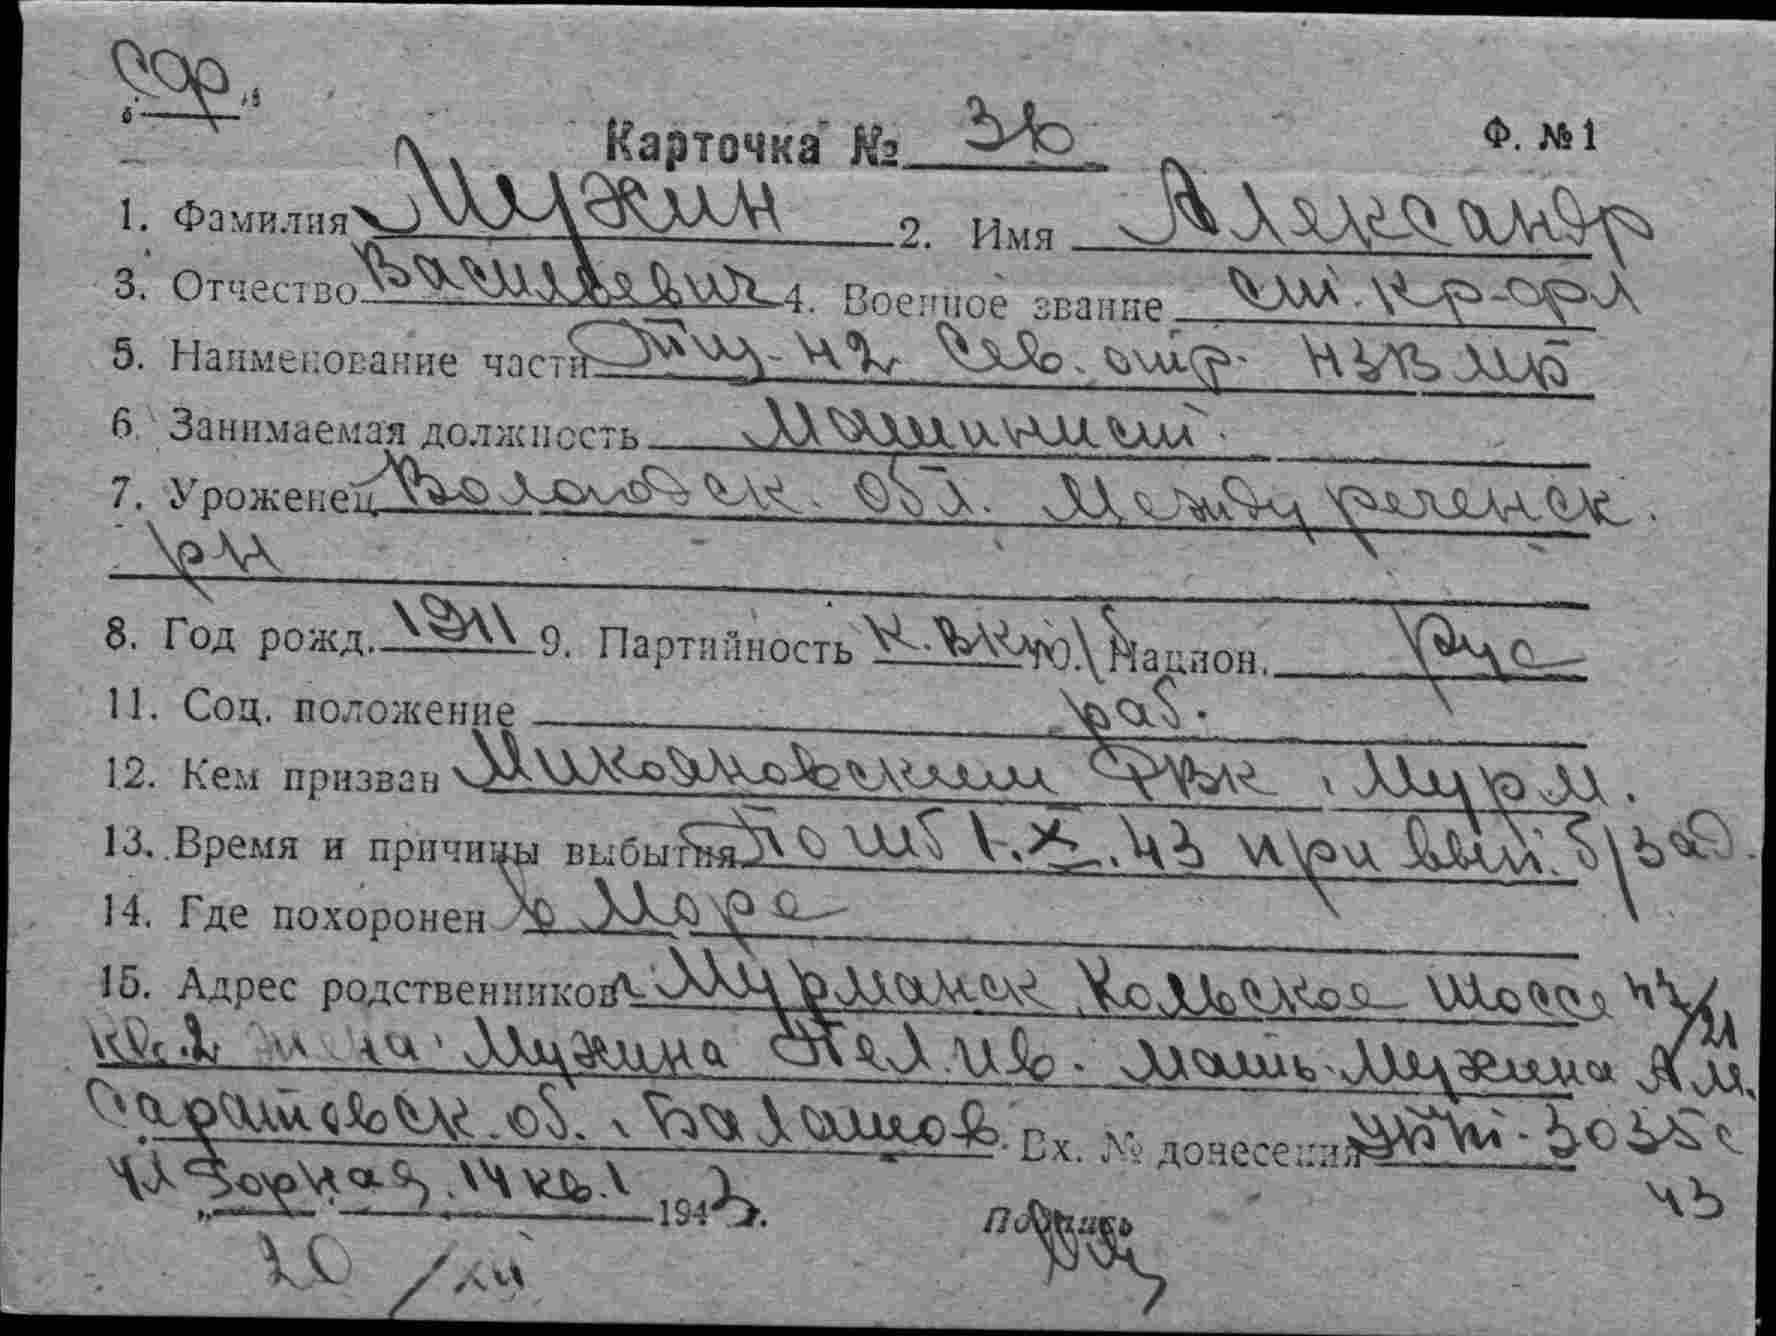 Сар.
Карточка № 36 Ф. № 1
1. Фамилия Мужин 2. Имя Александр
3. Отчество Васильевич 4. Военное звание ст. кр-фл
5. Наименование части 42 Сев. отр. ЧЗВМБ
6. Занимаемая должность Машинист.
7. Уроженец Вологодск. обл. Междуреченск.
рн
8. Год рожд. 1911 9. Партийность к. ВКП/б Национ. Рус
11. Соц. положение раб.
12. Кем призван Микояновским РВК, Мурм.
13. Время и причины выбытия Погиб 1.X.43 при вып. б/зад.
14. Где похоронен в Море
15. Адрес родственников г. Мурманск Кольское шоссе
кв. 2 жена Мужина Пел. Ив. мать Мужина А М.
Саратовск. об. Балашов. Вх. № донесения 3035с
ул Горная 14 кв. 1 1943 г. 43
Подпись
20/XII